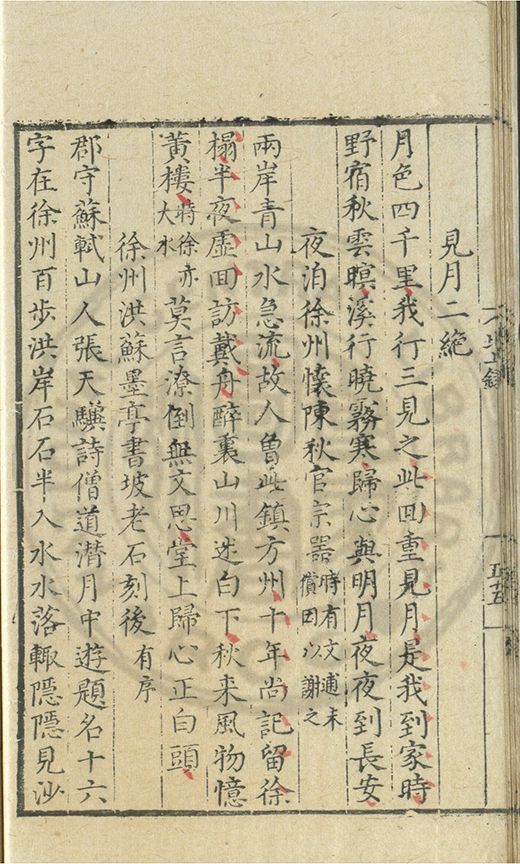 見月二絕
月色四千里我行三見之此回重見月是我到家時
野宿秋雲暝溪行曉霧寒歸心與明月夜夜到長安
夜泊徐州懷陳秋官宗器時有文逋未償因以謝之
兩岸青山水急流故人曾此鎮方州十年尚記留徐
榻半夜虛回訪戴舟醉裏山川迷白下秋来風物憶
黃樓時徐亦大水莫言潦倒無文思堂上歸心正白頭
徐州洪蘇墨亭書坡老石刻後有序
郡守蘇軾山人張天驥詩僧道潜月中遊題名十六
字在徐州百步洪岸石石半入水水落輙隱隱見沙